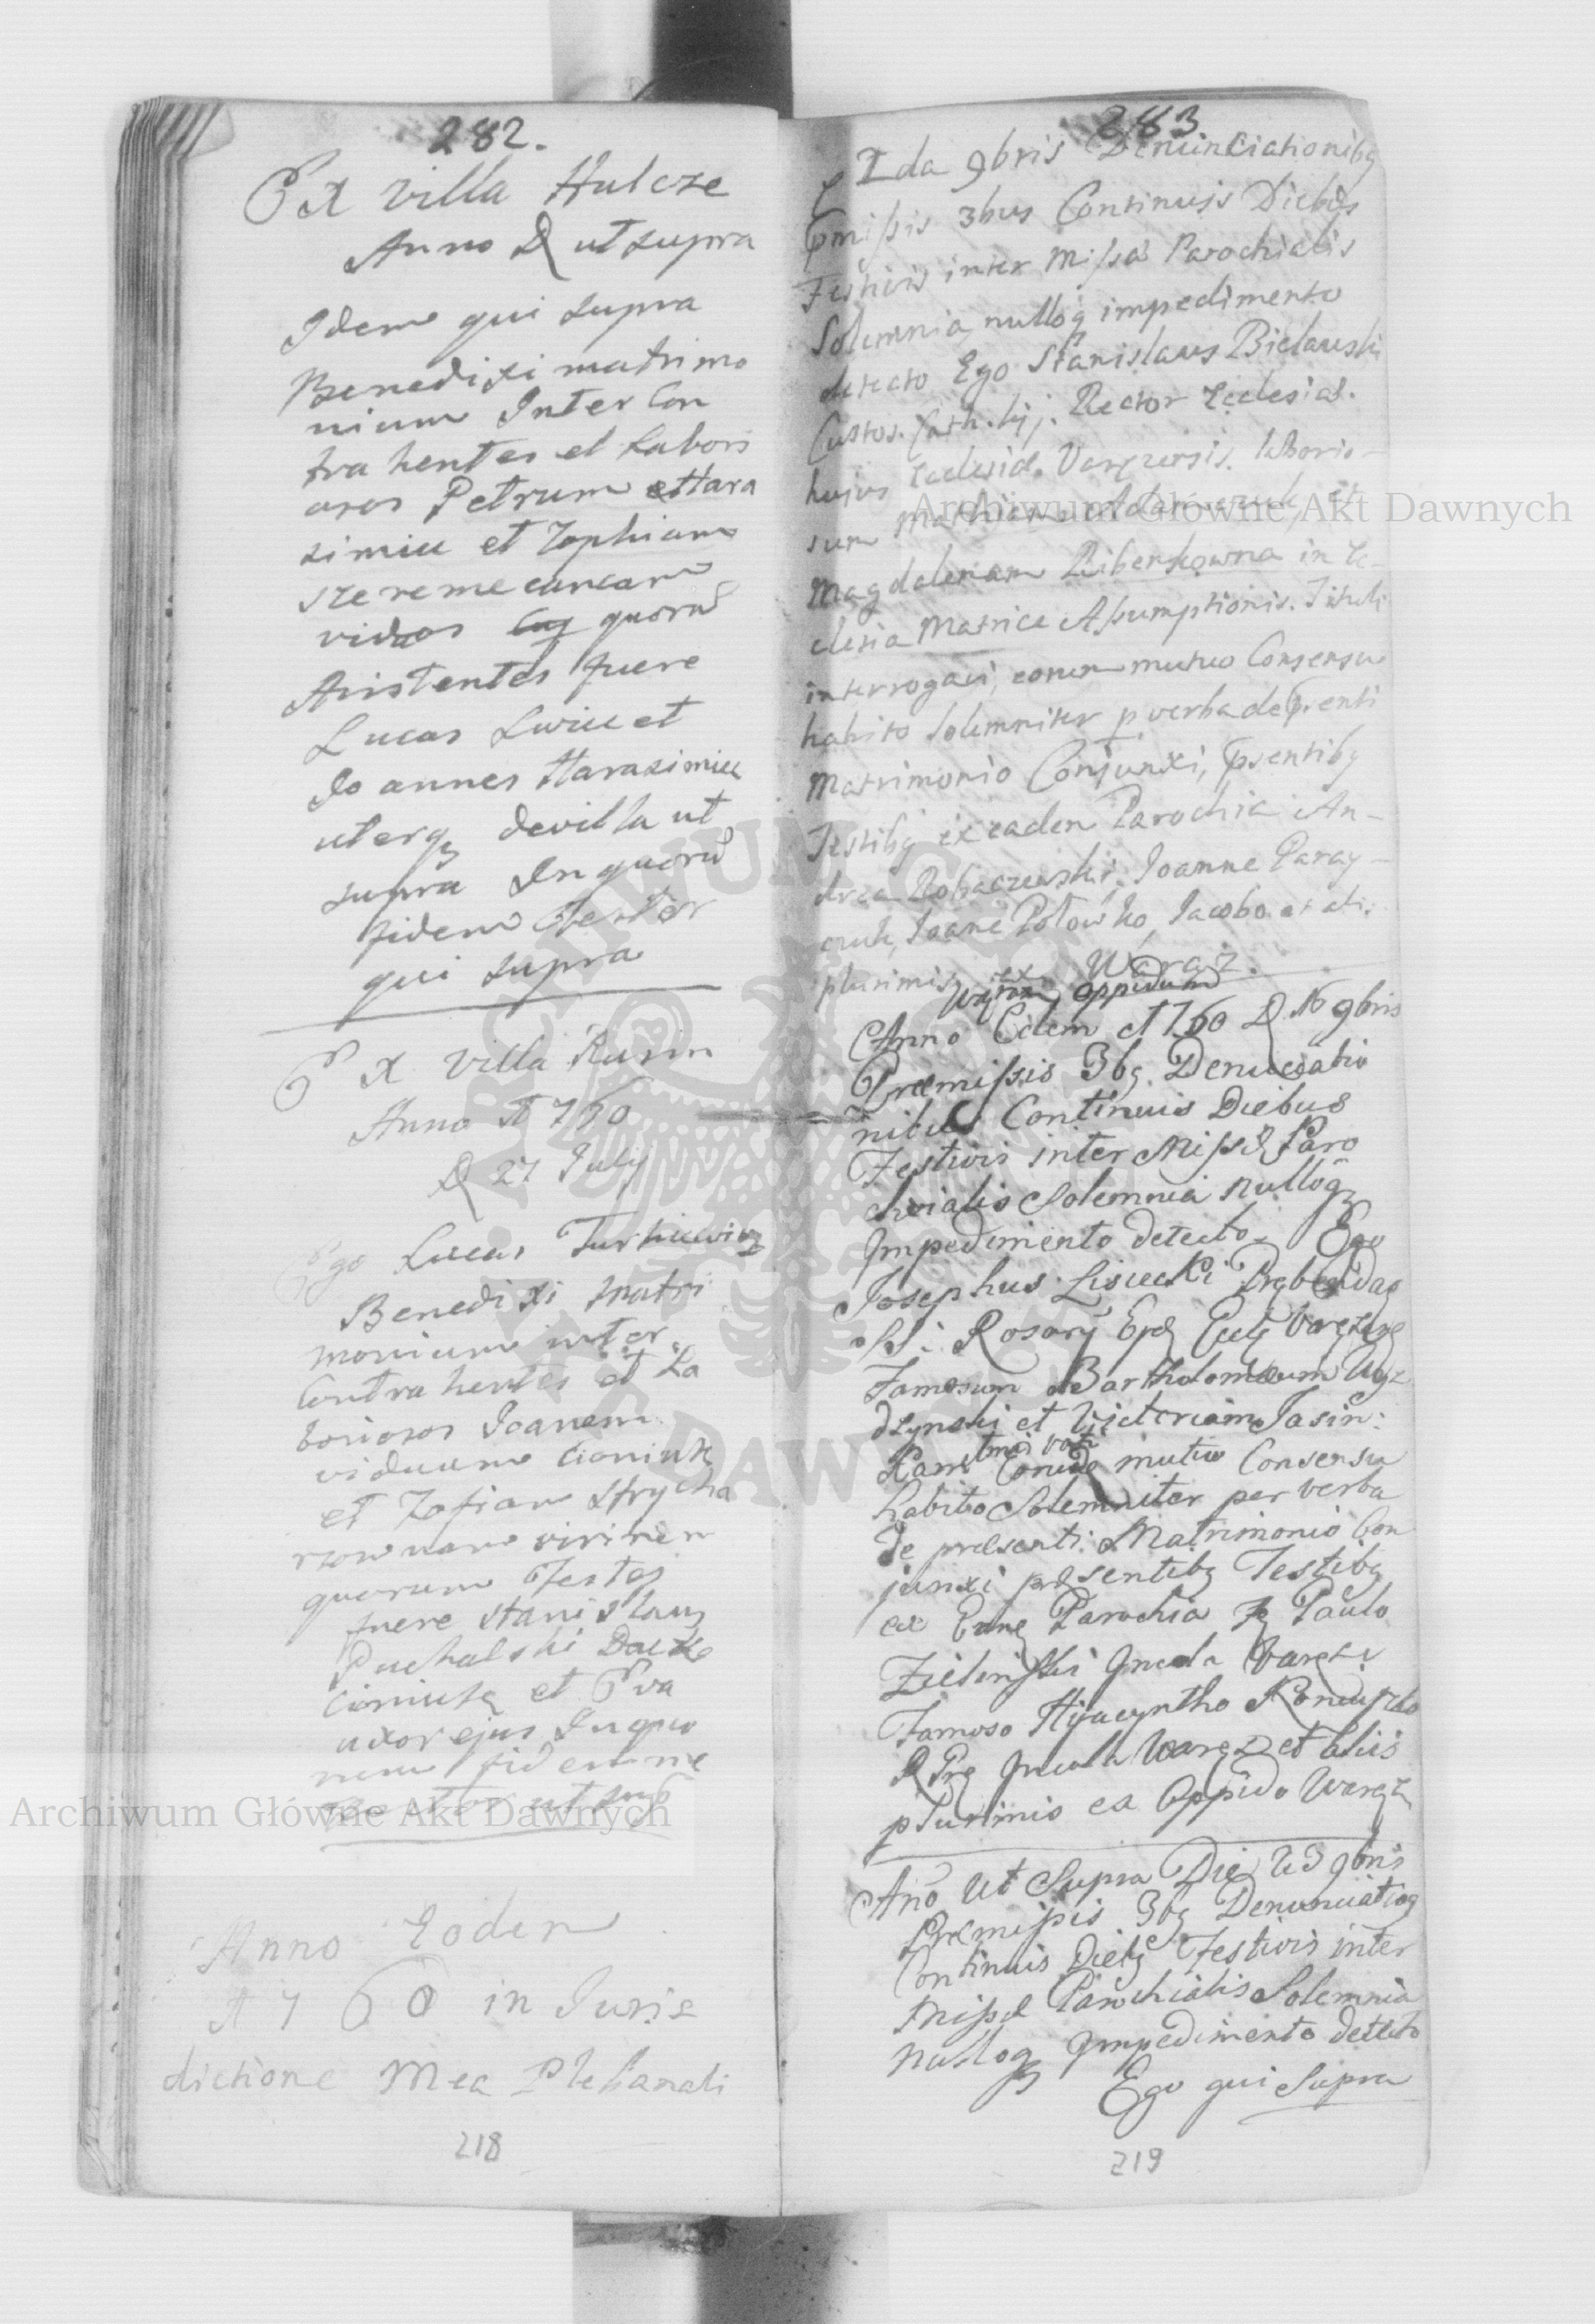 282.
Ex villa Hulcze
Anno D ut supra
Idem qui supra
Benedixi matrimo
nium Inter Con
trahentes et Labori
osos Petrum Hara
simiu et Zophiam
szeremecuncam
viduos quorū
Asistentes fuere
Lucas Lwiu et
Joannes Harasimiu
uterq3 de villa ut
supra In quorū
fidem Testor
qui supra
Ex villa Rusin
Anno 1760
D 27 July
Ego Lucas Turkiewicz
Benedixi matri
monium inter
Contrahentes et La
boriosos Joanem
viduum Cioniuk
et Zofiam Hrycha
rzownam virinem
quorum Testes
fuere Stanislaus
Puchalski Dacko
Cioniuk et Eva
uxor ejus In quo
rum fidem me
Testor ut sup
Anno Eodem
1760 in Juris
dictione Mea Plebanali
218
283
2da 9bris Denunciationibq
pmissis 3bus Continuis Diebus
Festivis inter Missa Parochialis
Solemnia, nulloq impedimento
detecto Ego Stanislaus Bielawski
Custos. Cath. Rector Ecclesia.
hujus Ecclesia. Varezensis. laborio-
sum Mathiam Adamczuk, et
Magdalenam Ribenkowna in Ec-
clesia Matrice Assumptionis. Tituli
interrogavi, eorum mutuo Consensu
habito Solemniter p verba de prenti
Matrimonio Conjunxi, psentibq
Testibq ex eadem Parochia An-
drea Rohaczewski, Joanne Paray-
czuk, Joane Polowko, Jacobo et ali:
plurimis ex Waraz.
Waręz oppidum
Anno Eodem 1760 D 16 9bris
Præmissis 3bq Denunciatio
nibus Continuis Diebus
Festivis inter Missæ Paro
chialis Solemnia nulloq
Impedimento detecto. Ego
Josephus Lisiecki Præbendaq
SS: Rosarij Ejdq Eccle Varezen
Famosum Bartholomæum Ugz
dzynski et Victoriam Jasin:
mutuo Consensu
habito Solemniter per verba
de præsenti Matrimonio Con
junxi præsentibq Testibq
ex Parochia Paulo
Zielinski Incola Varęz
Famoso Hyacyntho
Incola Waręz et Aliis
plurimis ex Oppido Waręz
Año Ut Supra Die 23 9bris
Præmissis 3bq Denunciatioq
Continuis Diebq Festivis inter
Missæ Parochialis Solemnia
Nulloq Impedimento detecto
Ego qui Supra
219
Archiwum Główne Akt Dawnych
Archiwum Główne Akt Dawnych
ARCHIWUM GŁÓWNE AKT DAWNYCH